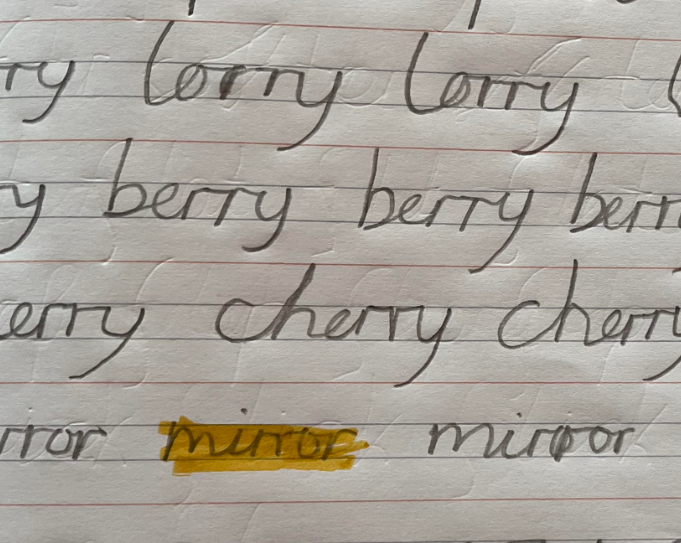 ry lorry lorry
y berry berry berr
erry cherry cherry
rror mirror mirror